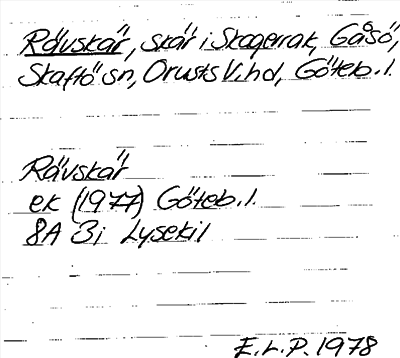 Rävskär, skär i Skagerrak, Gåsö,
Skaftö sn, Orusts V. hd, Göteb. l.
Rävskär
ek (1977) Göteb. l.
8A 3i Lysekil
E.L.P. 1978